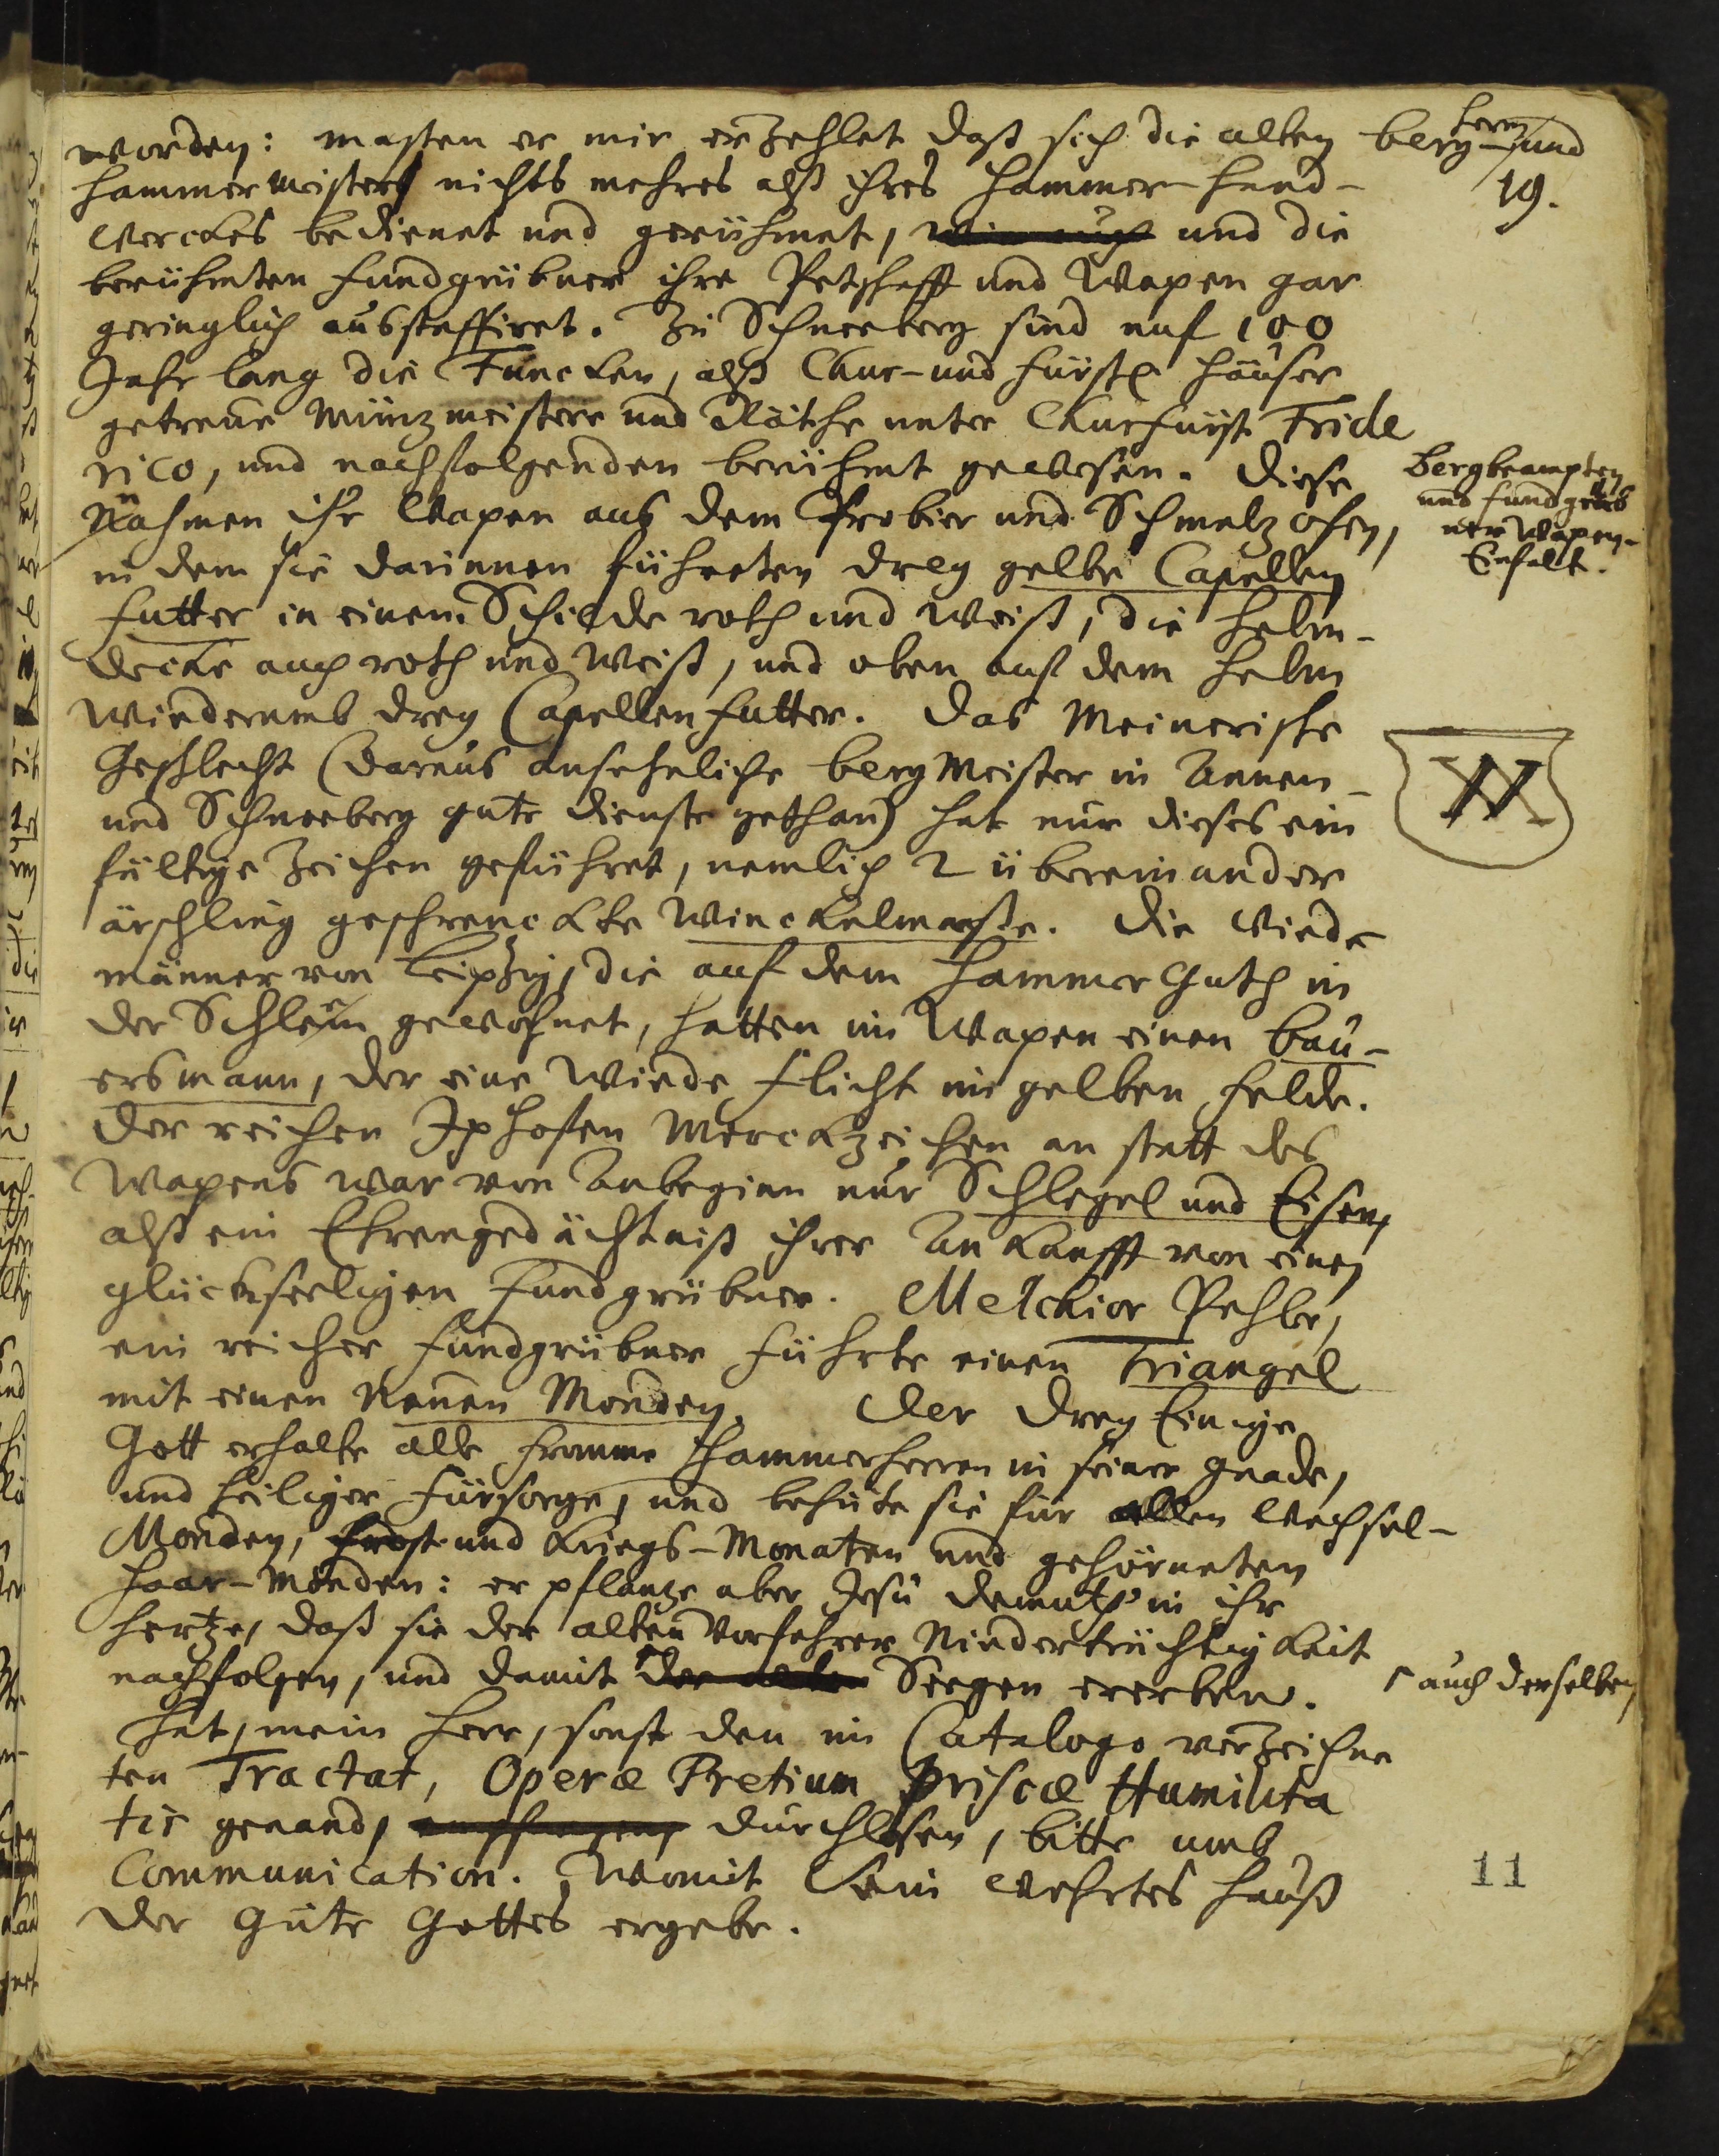 worden: masten er mir erzehlet daß sich die alten berg- herrn und
19.
hammermeisters nichts mehres alß ihres hammer-hand-
werckes bedienet und gerühmet, wie auch und die
berühmten fundgrübner ihre Petschafft und Wapen gar
geringlich ausstaffiret. Zu Schneeberg sind auf 100
Jahr lang die Funcken, alß Chur- und fürstl. häuser
getreue Müntzmeistere und Räthe unter Churfürst Fride
rico, und nachfolgenden berühmt gewesen. Diese
Nahmen ihr Wapen aus dem Probier und Schmeltzofen,
in dem sie darinnen führeten drey gelbe Capellen
futter in einem Schilde roth und weiß, die helm-
decke auch roth und weiß, und oben auf dem helm
wiederumb drey Capellenfutter. Das Meinerische
Geschlecht (daraus ansehnliche bergMeister in Annen-
und Schneeberg gute dienste gethan) hat nur dieses ein
fältige Zeichen geführet, nemlich 2 übereinander
ärschling geschrenckte Winckelmaße. Die Wiede
männer von Leipzig, die auf dem Hammer Guth in
der Schlem gewohnet, hatten im Wapen einen bau-
ersmann, der eine Wiede flicht im gelben felde.
Der reichen Iphofen Merckzeichen an statt des
Wapens war von Anbeginn nur Schlegel und Eisen,
alß ein Ehrengedächtniß ihrer Ankunfft von einen
glückseeligen Fundgrübner. Melchior Pehle,
ein reicher fundgrübner führte einen Triangel
mit einen Neuen Monden. Der Drey Einige
Gott erhalte alle fromme Hammerherren in seiner gnade,
und heiliger fürsorge, und behüte sie für allen Wechsel-
Monden, frost- und Kriegs-Monaten und gehörneten
haar-Monden: er pflantze aber Jesu demuth in ihr
hertze, daß sie der alten Vorfahren Niederträchtigkeit
nachfolgen, und damit der alten Seegen ererben.
Hat, mein Herr, sonst den im Catalogo verzeichne
ten Tractat, Operæ Pretium priscæ Humilita
tis genand, durchlesen, bitte umb
Communication. Womit Sein wehrtes Hauß
der Güte Gottes ergebe.
Bergbeampten
und fundgrüb
ner Wapen-
Einfalt.
auch derselben
11